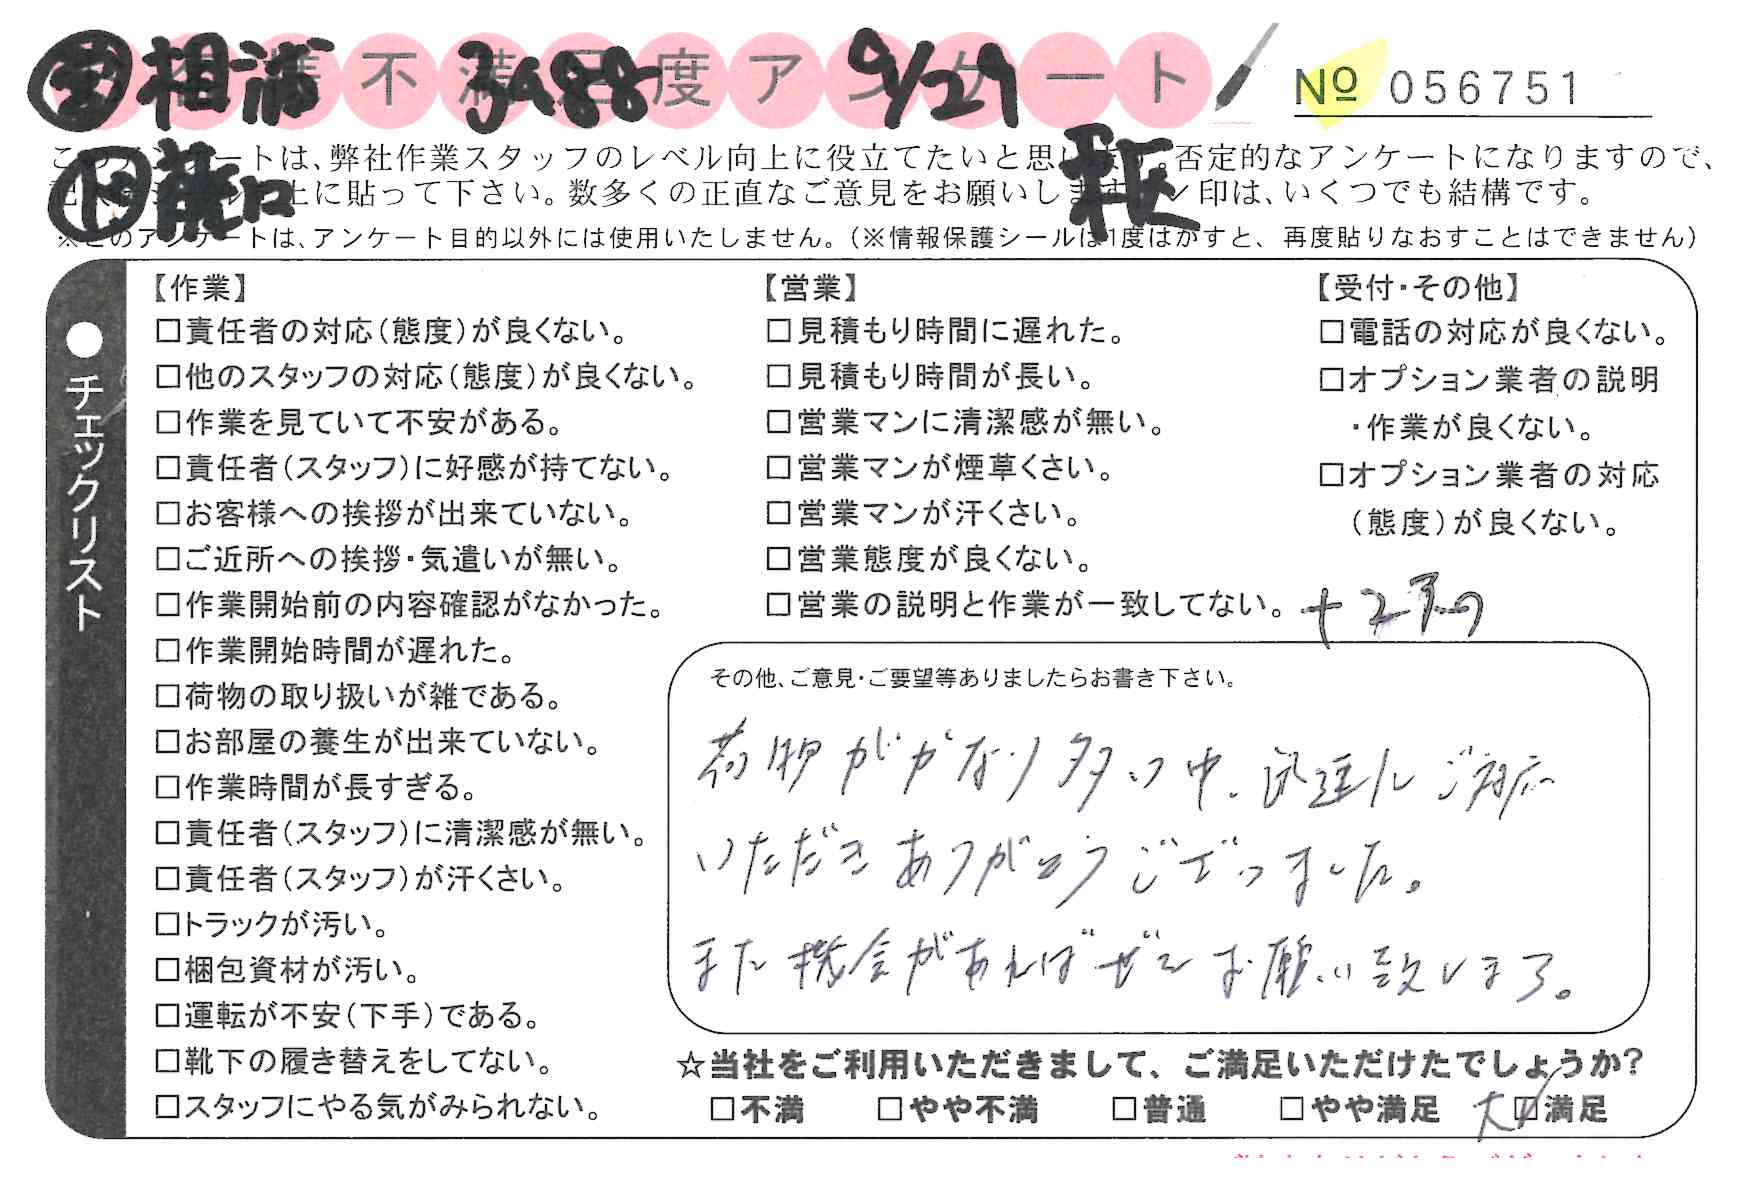 相浦 3988 9/29
不 度アンケート
№ 056751
樋口
このアンケートは、弊社作業スタッフのレベル向上に役立てたいと思います。否定的なアンケートになりますので、
上に貼って下さい。数多くの正直なご意見をお願いします 印は、いくつでも結構です。
※このアンケートは、アンケート目的以外には使用いたしません。(※情報保護シールは1度はがすと、再度貼りなおすことはできません)
●チェックリスト
【作業】
□責任者の対応(態度)が良くない。
□他のスタッフの対応(態度)が良くない。
□作業を見ていて不安がある。
□責任者(スタッフ)に好感が持てない。
□お客様への挨拶が出来ていない。
□ご近所への挨拶・気遣いが無い。
□作業開始前の内容確認がなかった。
□作業開始時間が遅れた。
□荷物の取り扱いが雑である。
□お部屋の養生が出来ていない。
□作業時間が長すぎる。
□責任者(スタッフ)に清潔感が無い。
□責任者(スタッフ)が汗くさい。
□トラックが汚い。
□梱包資材が汚い。
□運転が不安(下手)である。
□靴下の履き替えをしてない。
□スタッフにやる気がみられない。
【営業】
□見積もり時間に遅れた。
□見積もり時間が長い。
□営業マンに清潔感が無い。
□営業マンが煙草くさい。
□営業マンが汗くさい。
□営業態度が良くない。
□営業の説明と作業が一致してない。
【受付・その他】
□電話の対応が良くない。
□オプション業者の説明
・作業が良くない。
□オプション業者の対応
(態度)が良くない。
その他、ご意見・ご要望等ありましたらお書き下さい。
荷物がかなり多い中、迅速にご対応
いただきありがとうございました。
また機会があればぜひお願い致します。
☆当社をご利用いただきまして、ご満足いただけたでしょうか?
□不満 □やや不満 □普通 □やや満足 大☑満足